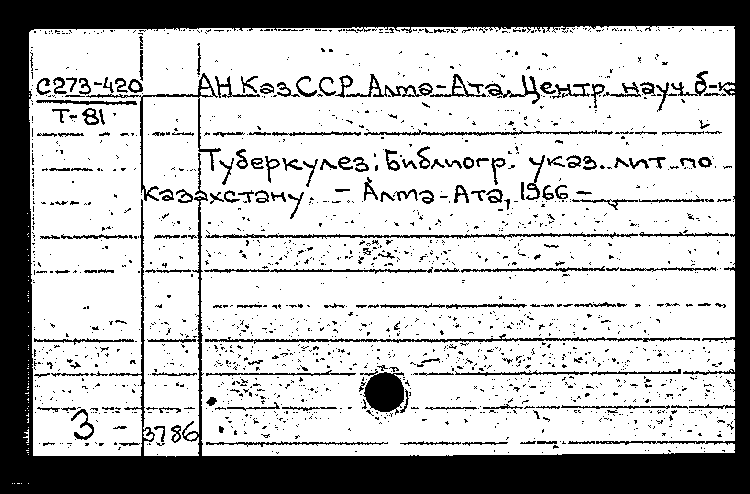 С273-420 АН КазССР Алма-Ата. Центр. науч. б-ка
Т-81
Туберкулез; Библиогр. указ. лит по
Казахстану. - Алма-Ата, 1966 -
3 - 3786